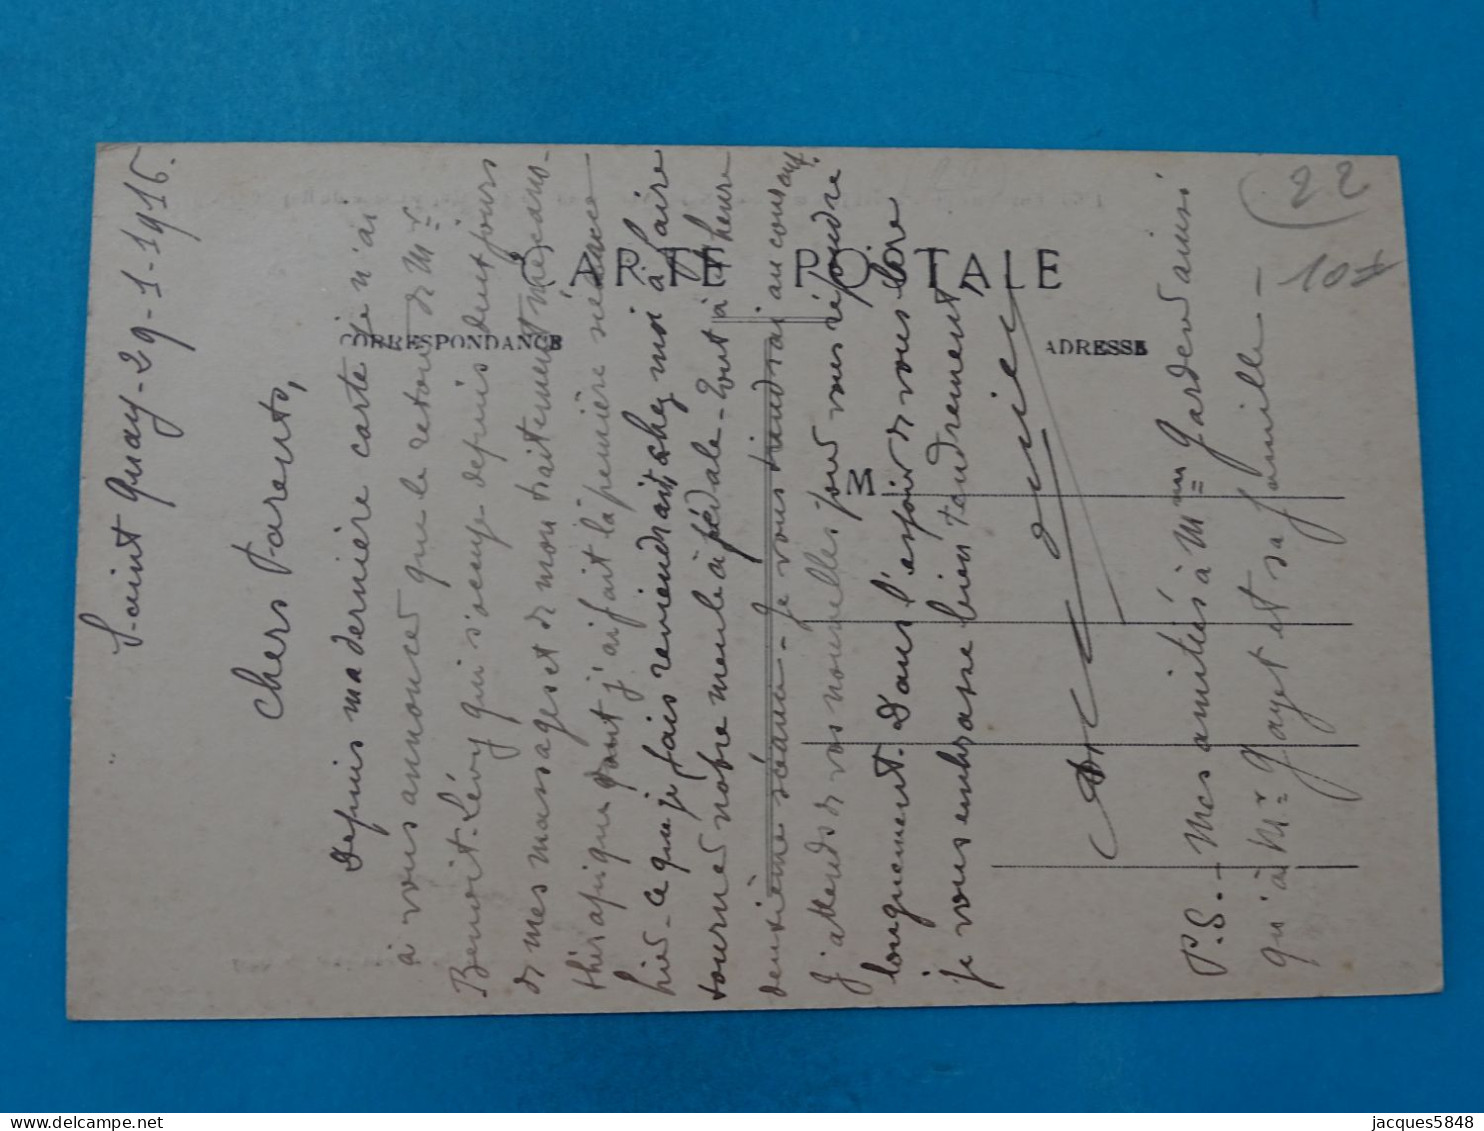 Saint Quay-29-1-1916.
Chers Parents,
Depuis ma dernière carte je n'ai
à vous annoncer que le retour de Mr
Benoit-Lévy qui s'occupe depuis deux jours
de mes massages et de mon traitement mécano-
thérapique dont j'ai fait la première séance
hier - ce que je fais reviendrait chez moi à faire
tourner notre meule à pédale - Tout à l'heure
deuxième séance - Je vous tiendrai au courant.
J'attends de vos nouvelles pour vous répondre
longuement. Dans l'espoir de vous lire
je vous embrasse bien tendrement
P.S. - Mes amitiés à Mme Gardien ainsi
qu'à Mr Gayet et sa famille -
CARTE POSTALE
CORRESPONDANCE
ADRESSE
M
22
10
jacques5848